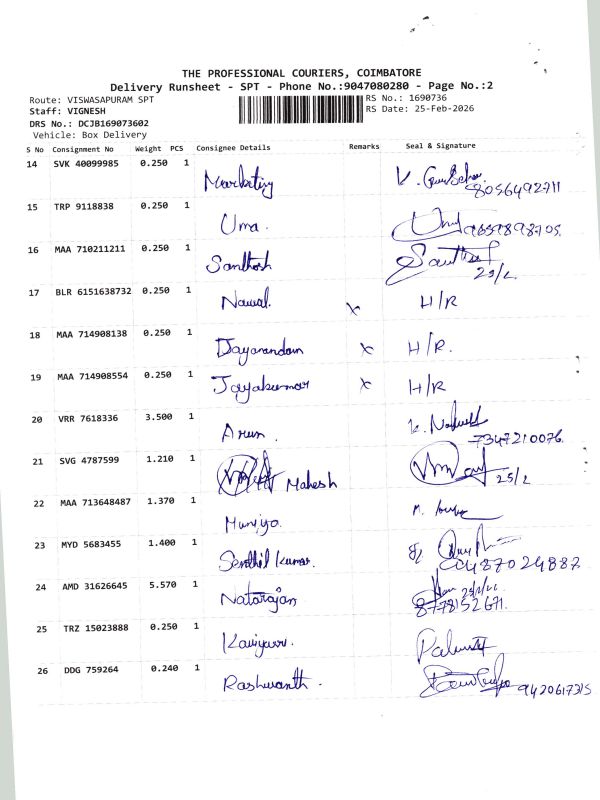 THE PROFESSIONAL COURIERS, COIMBATORE
Delivery Runsheet - SPT - Phone No.:9047080280 - Page No.:2
Route: VISWASAPURAM SPT
RS No.: 1690736
Staff: VIGNESH
RS Date: 25-Feb-2026
DRS No.: DCJB169073602
Vehicle: Box Delivery
S No Consignment No Weight PCS Consignee Details Remarks Seal & Signature
14 SVK 40099985 0.250 1 Marketing 8056492711
15 TRP 9118838 0.250 1 Uma.
16 MAA 710211211 0.250 1 Santhosh
17 BLR 6151638732 0.250 1 Nawal. x H/R
18 MAA 714908138 0.250 1 x H/R.
19 MAA 714908554 0.250 1 Jayakumar x H/R
20 VRR 7618336 3.500 1 Arun. 7347210076.
21 SVG 4787599 1.210 1 Mahesh 25/2
22 MAA 713648487 1.370 1
23 MYD 5683455 1.400 1 Senthil Kumar.
24 AMD 31626645 5.570 1 Natarajan 8778152671.
25 TRZ 15023888 0.250 1
26 DDG 759264 0.240 1 Rashwanth. 9420617315